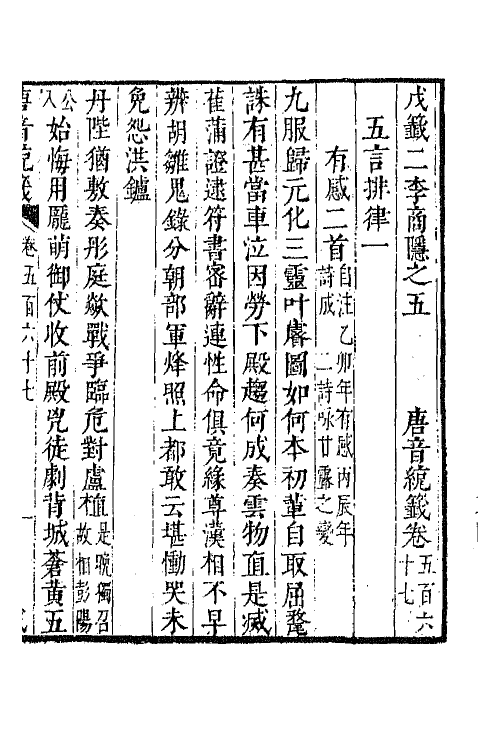 戊籤二李商隱之五　唐音統籤卷五百六十七
五言排律一
有感二首自注乙卯年有感丙辰年詩成　二詩咏甘露之變
九服歸元化三靈叶睿圖如何本初輩自取屈氂
誅有甚當車泣因勞下殿趨何成奏雲物直是滅
萑蒲證逮符書密辭連性命俱竟緣尊漢相不早
辨胡雛鬼籙分朝部軍烽照上都敢云堪慟哭未
免怨洪鑪
丹陛猶敷奏彤庭歘戰爭臨危對盧植是晚獨召故相彭陽
公入始悔用龐萌御仗收前殿兇徒劇背城蒼黃五
唐音統籤　卷五百六十七　一